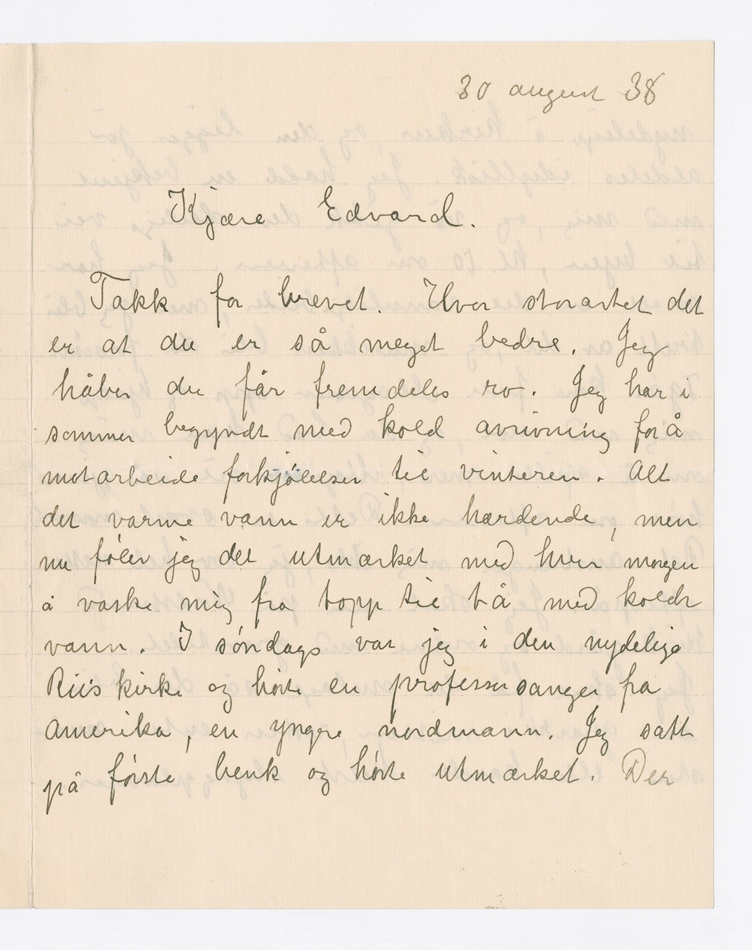 30 august 38
Kjære Edvard.
Takk for brevet. Hvor storartet det
er at du er så meget bedre. Jeg
håber du får fremdeles ro. Jeg har i
sommer begyndt med kold avrivning for å
motarbeide forkjølelser til vinteren. Alt
det varme vann er ikke hærdende, men
nu føler jeg det utmærket med hver morgen
å vaske mig fra topp til tå med koldt
vann. I søndags var jeg i den nydelige
Riis kirke og hørte en professor sanger fra
Amerika, en yngre nordmann. Jeg satt
på første benk og hørte utmærket. Der